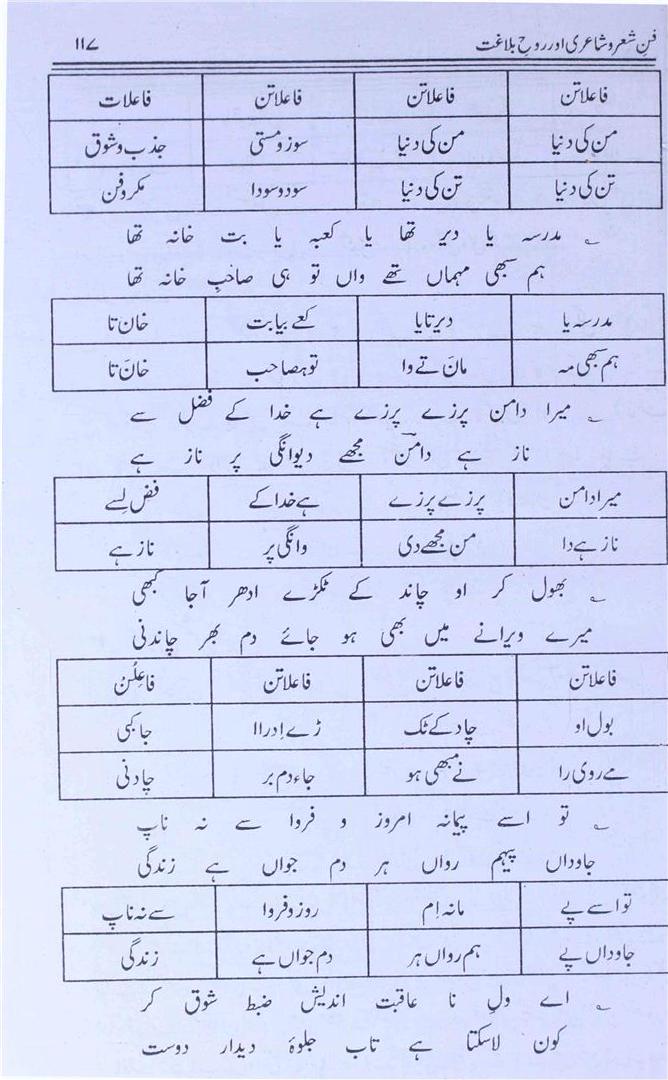 فنِ شعر و شاعری اور روحِ بلاغت ۱۱۷
فاعلاتن فاعلاتن فاعلاتن فاعلات
من کی دنیا من کی دنیا سوز و مستی جذب و شوق
تن کی دنیا تن کی دنیا سود و سودا مکر و فن
؂ مدرسہ یا دیر تھا یا کعبہ یا بت خانہ تھا
ہم سبھی مہماں تھے واں تو ہی صاحبِ خانہ تھا
مدرسہ یا دیر تا یا کعبے یا بت خان تا
ہم سبھی مہ مانَ تے وا تو ہصاحب خانَ تا
؂ میرا دامن پرزے پرزے ہے خدا کے فضل سے
ناز ہے دامن مجھے دیوانگی پر ناز ہے
میرا دامن پرزے پرزے ہے خدا کے فض لسے
ناز ہے دا من مجھے دی وانگی پر ناز ہے
؂ بھول کر او چاند کے ٹکڑے ادھر آجا کبھی
میرے ویرانے میں بھی ہو جائے دم بھر چاندنی
فاعلاتن فاعلاتن فاعلاتن فاعِلُن
بول او چاد کے ٹک ڑے اِدراا جا کبی
مے روی را نے مبھی ہو جاء دم بر چادنی
؂ تو اسے پیمانہ امروز و فروا سے نہ ناپ
جاوداں پیہم رواں ہر دم جواں ہے زندگی
تو اسے پے مانہ اِم روز و فروا سے نہ ناپ
جاوداں پے ہم رواں ہر دم جواں ہے زندگی
؂ اے ولِ نا عاقبت اندیش ضبط شوق کر
کون لاسکتا ہے تاب جلوۂ دیدار دوست